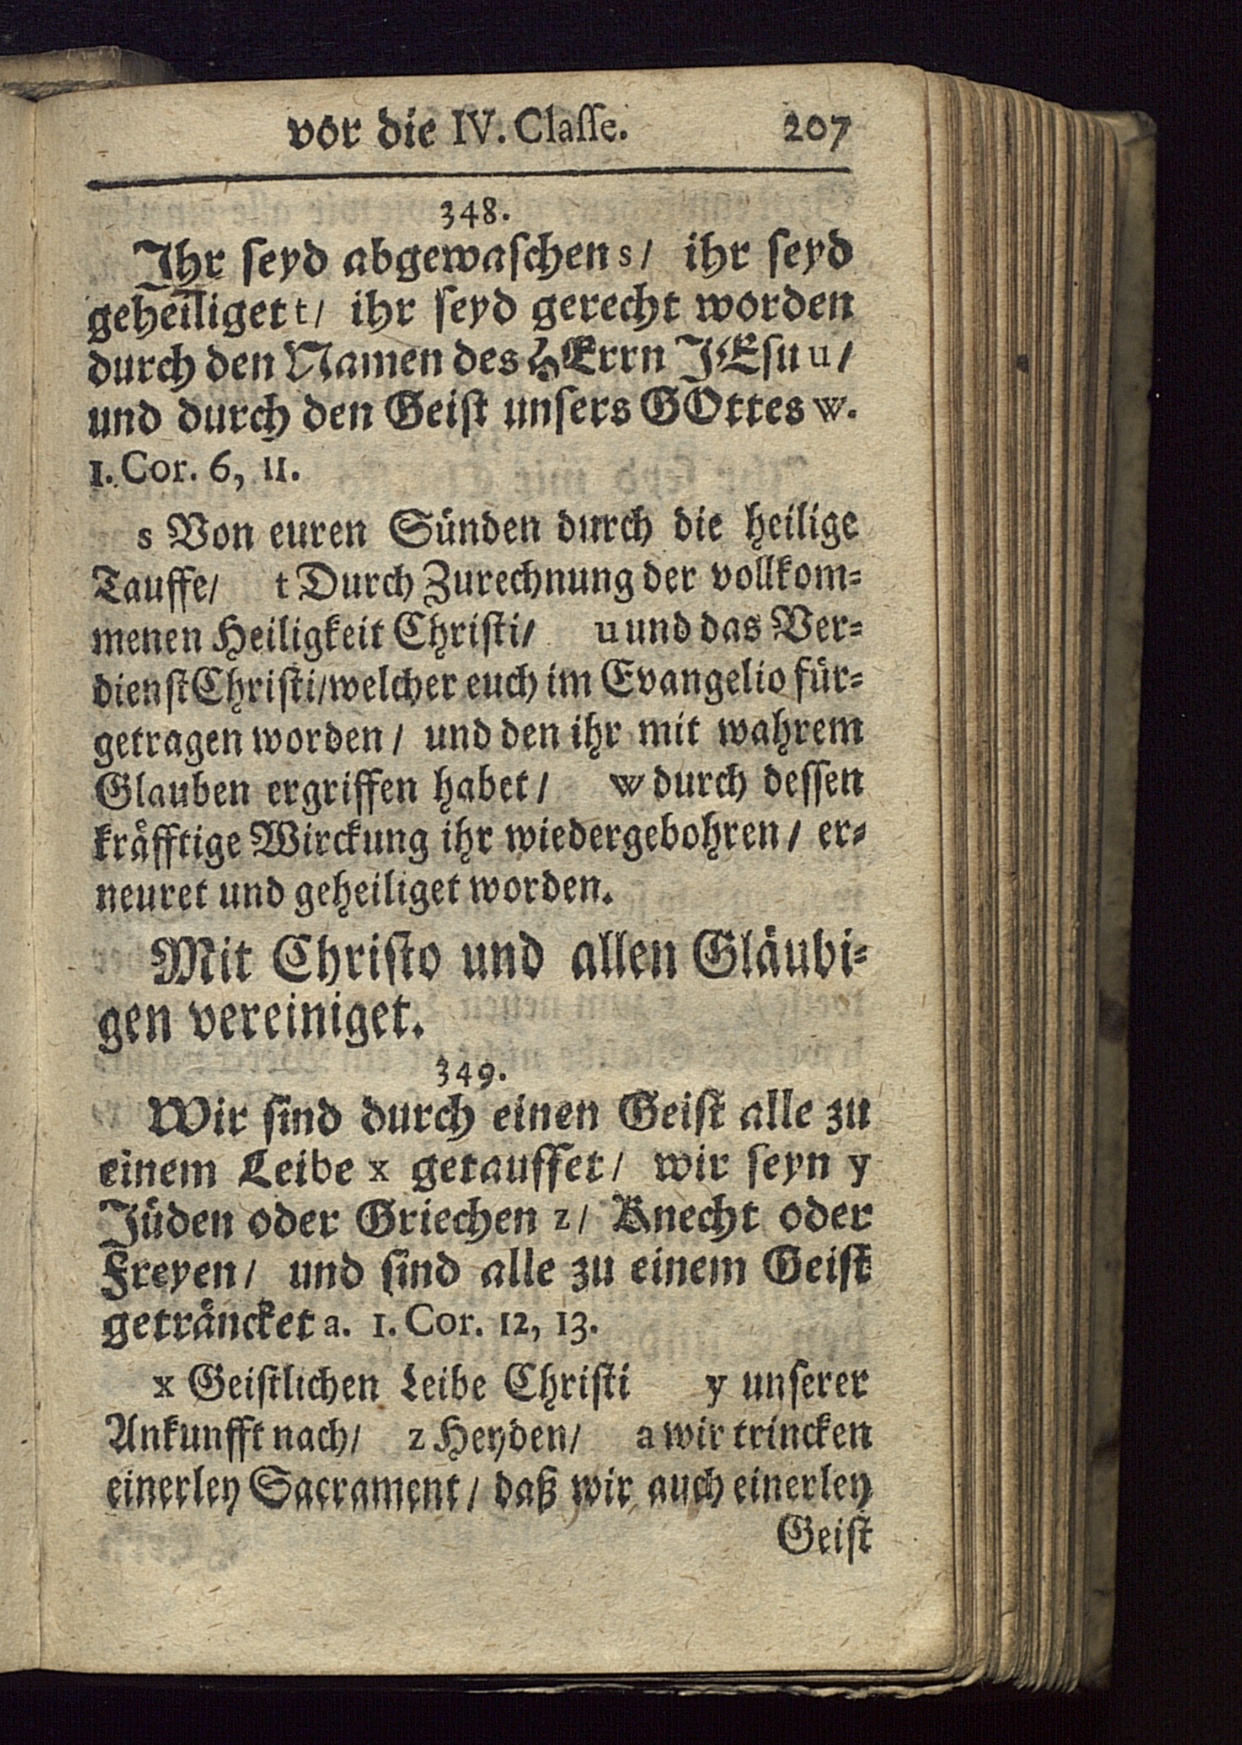 vor die IV. Claſſe. 207
348.
Ihr ſeyd abgewaſchen s/ ihr ſeyd
geheiliget t/ ihr ſeyd gerecht worden
durch den Namen des HErrn JEſu u/
und durch den Geiſt unſers GOttes w.
1. Cor. 6, 11.
s Von euren Sünden durch die heilige
Tauffe/ t Durch Zurechnung der vollkom-
menen Heiligkeit Chriſti/ u und das Ver-
dienſt Chriſti/ welcher euch im Evangelio für-
getragen worden/ und den ihr mit wahrem
Glauben ergriffen habet/ w durch deſſen
kräfftige Wirckung ihr wiedergebohren/ er-
neuret und geheiliget worden.
Mit Chriſto und allen Gläubi-
gen vereiniget.
349.
Wir ſind durch einen Geiſt alle zu
einem Leibe x getauffet/ wir ſeyn y
Jüden oder Griechen z/ Knecht oder
Freyen/ und ſind alle zu einem Geiſt
geträncket a. 1. Cor. 12, 13.
x Geiſtlichen Leibe Chriſti y unſerer
Ankunfft nach/ z Heyden/ a wir trincken
einerley Sacrament/ daß wir auch einerley
Geiſt